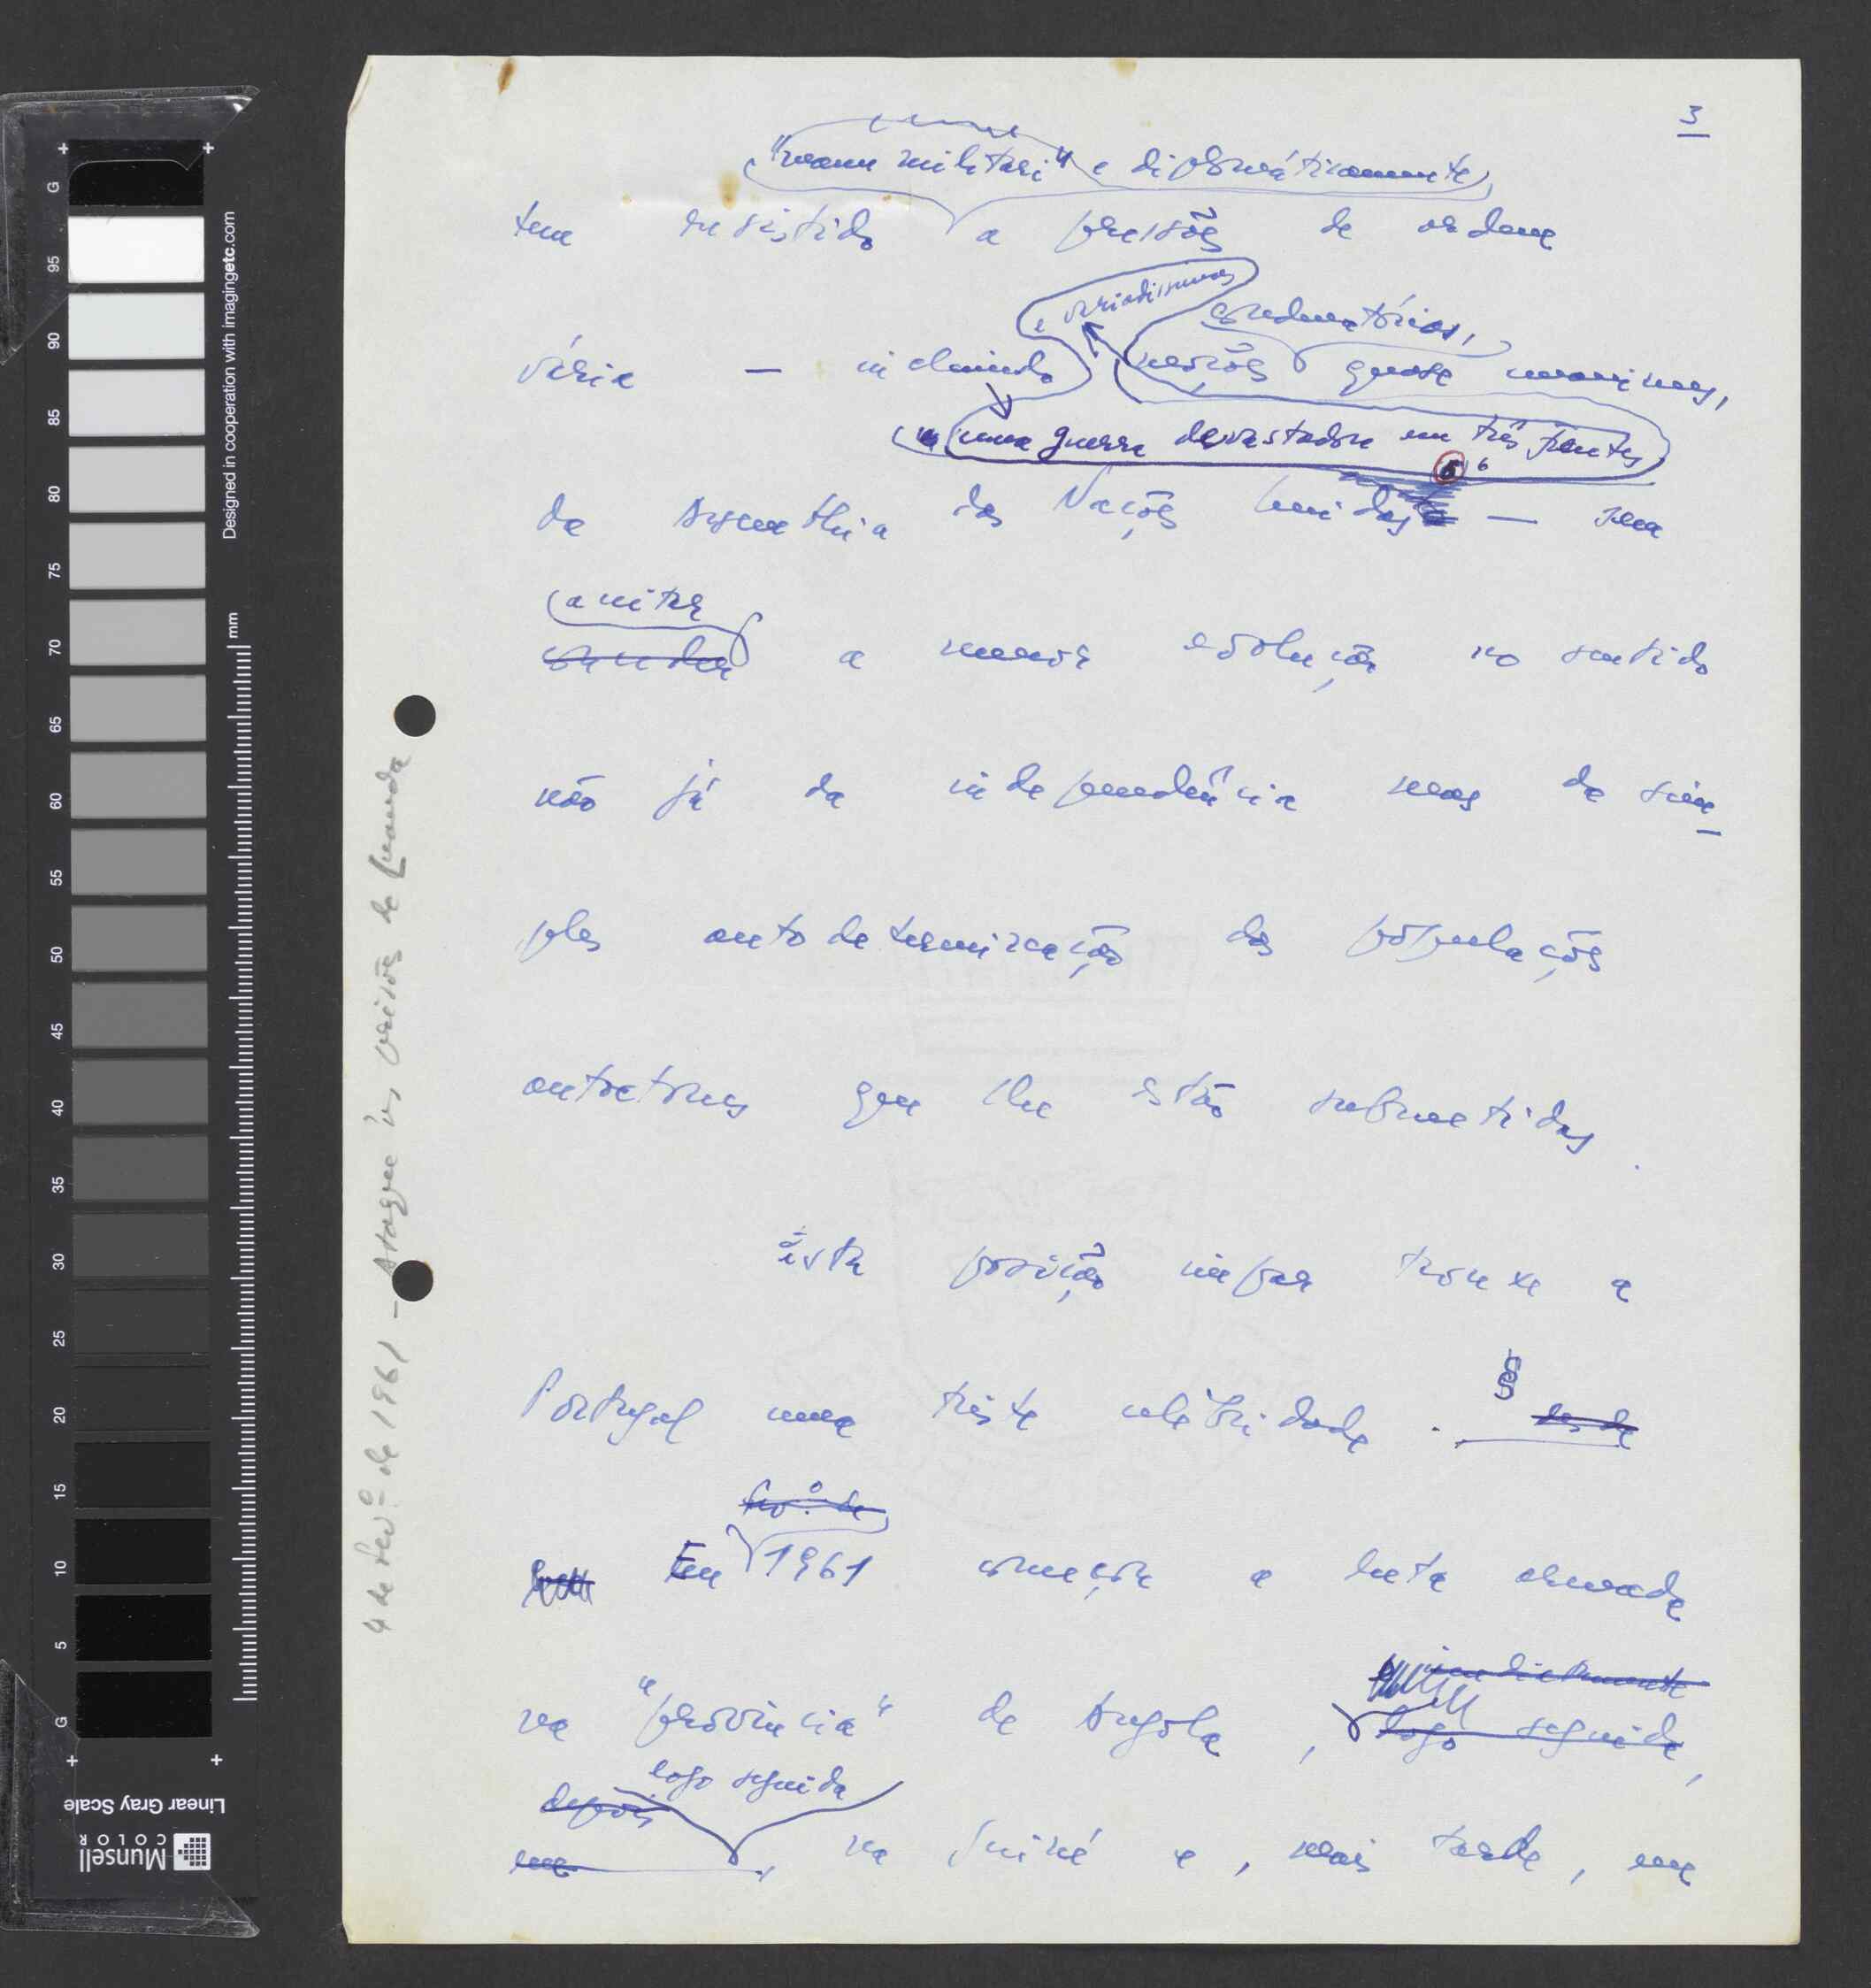 3
"manu militari" e diplomáticamente
tem resistido a pressões de ordem
e variadissimas
condenatórias,
vária — incluindo moções quase unanimes,
uma guerra devastadora em três frentes
6
da Assembleia das Nações Unidas — sem
aceitar
conceder a menor evolução no sentido
não já da independência mas da sim-
ples autodeterminação das populações
autoctones que lhe estão submetidas.
Esta posição impar trouxe a
Portugal uma triste celebridade. § desde
fev.º de
Em 1961 começou a luta armada
imediatamente
na "província" de Angola, logo seguida,
logo seguida
depois
em, na Guiné e, mais tarde, em
4 de Fev.º de 1961 — Ataque às prisões de Luanda
G 95 90 85 80 75 70 65 60 55 50 45 40 35 30 25 20 15 10 5 G
mm
Designed in cooperation with imagingetc.com
Linear Gray Scale
Munsell
COLOR